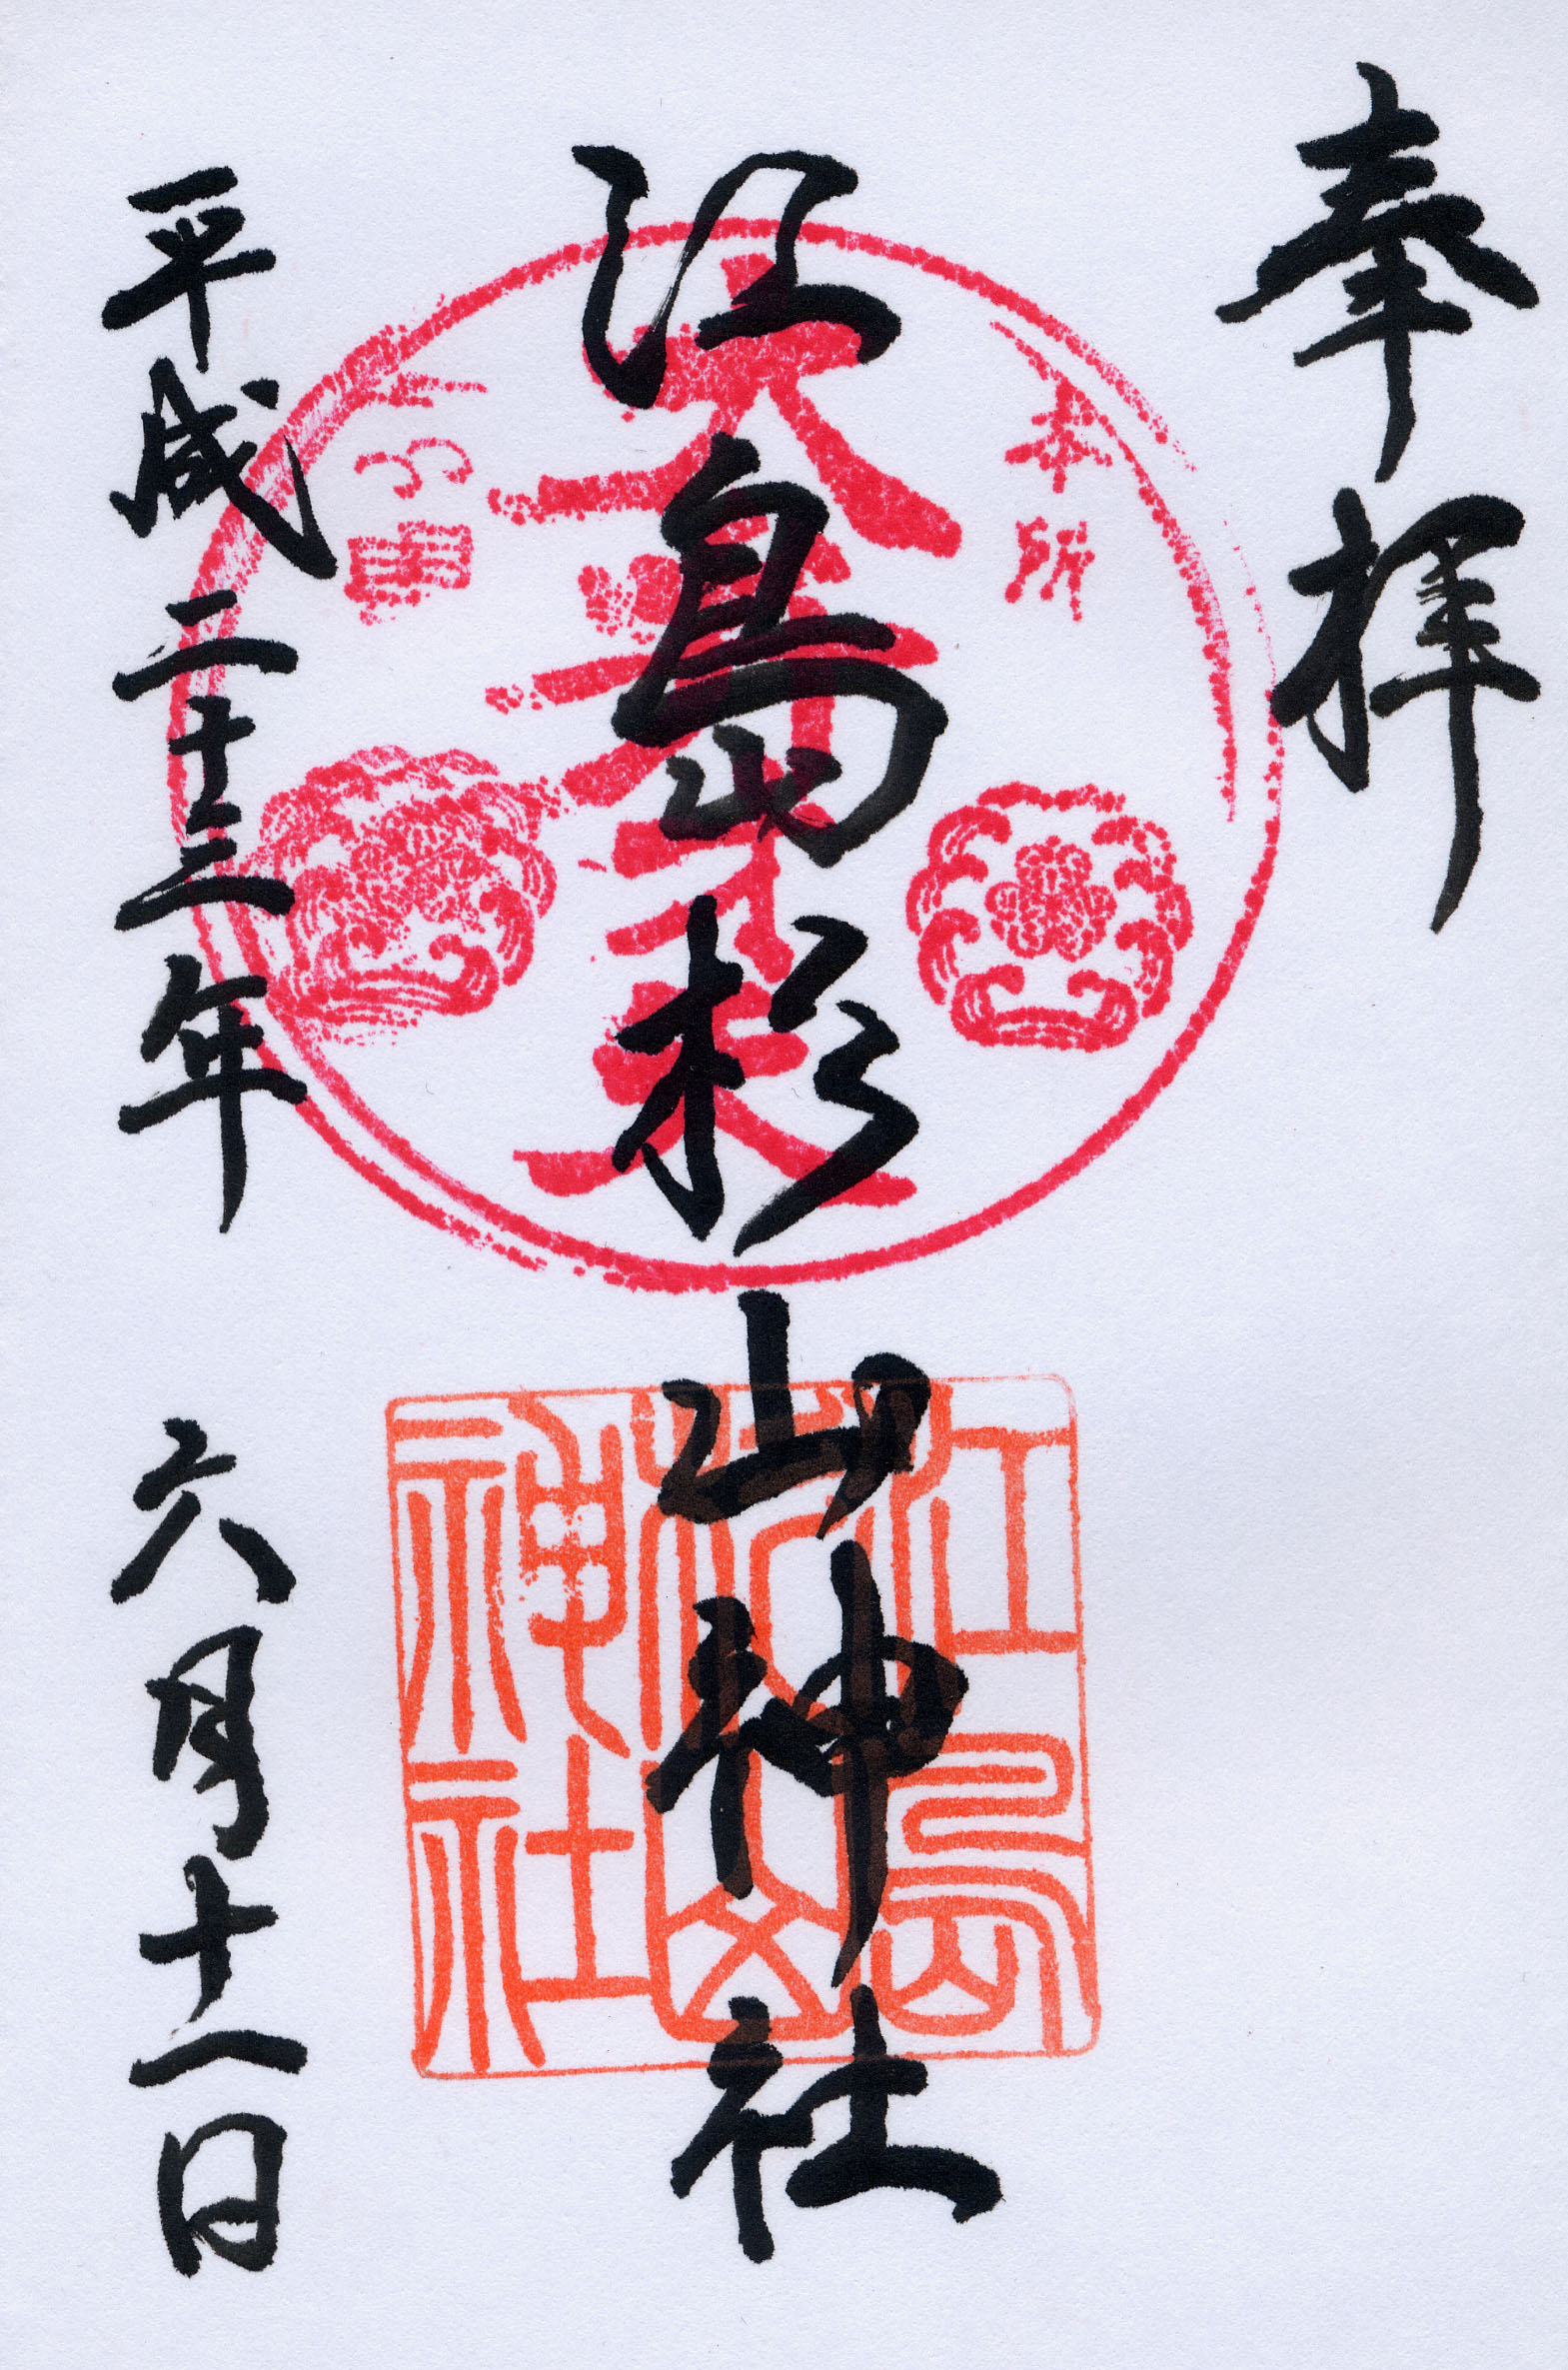 奉拝
江島杉山神社
平成二十三年 六月十一日
本所
一つ目
江島
杉山
神社